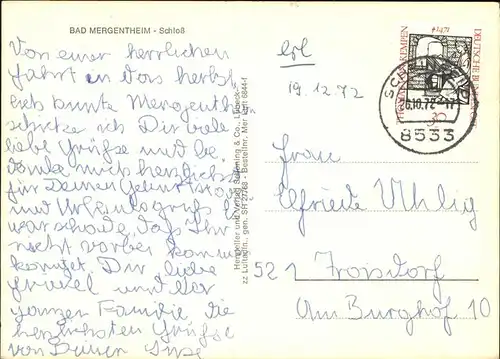 BAD MERGENTHEIM - Schloß
Von einer herrlichen
Fahrt in das herbst-
lich bunte Mergenth.
schicke ich Dir viele
liebe Grüße und be-
danke mich herzlich
für Deinen Geburtstags-
und Urlaubsgruß. Es
war schade, daß Ihr
nicht vorbei kommen
konntet. Dir liebe
Friedel und der
ganzen Familie die
herzlichsten Grüße
von Deiner
Hersteller und Verlag Schöning & Co., Lübeck
zz Luftaufn. gen. SH 27/68 - Bestellnr. Mer Luft 6844-1
erl
19.12.72
THOMAS VON KEMPEN
†1471
DEUTSCHE BUNDESPOST
30
.10.72-17
8533
Frau
Elfriede Uhlig
521 Troisdorf
Am Burghof 10